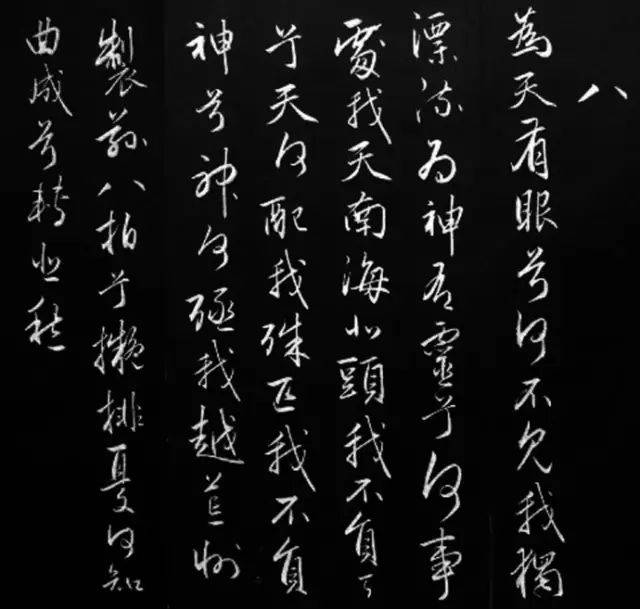 八
為天有眼兮何不見我獨
漂流為神有靈兮何事
處我天南海北頭我不負天
兮天何配我殊匹我不負
神兮神何殛我越荒州
製茲八拍兮擬排憂何知
曲成兮轉悲愁